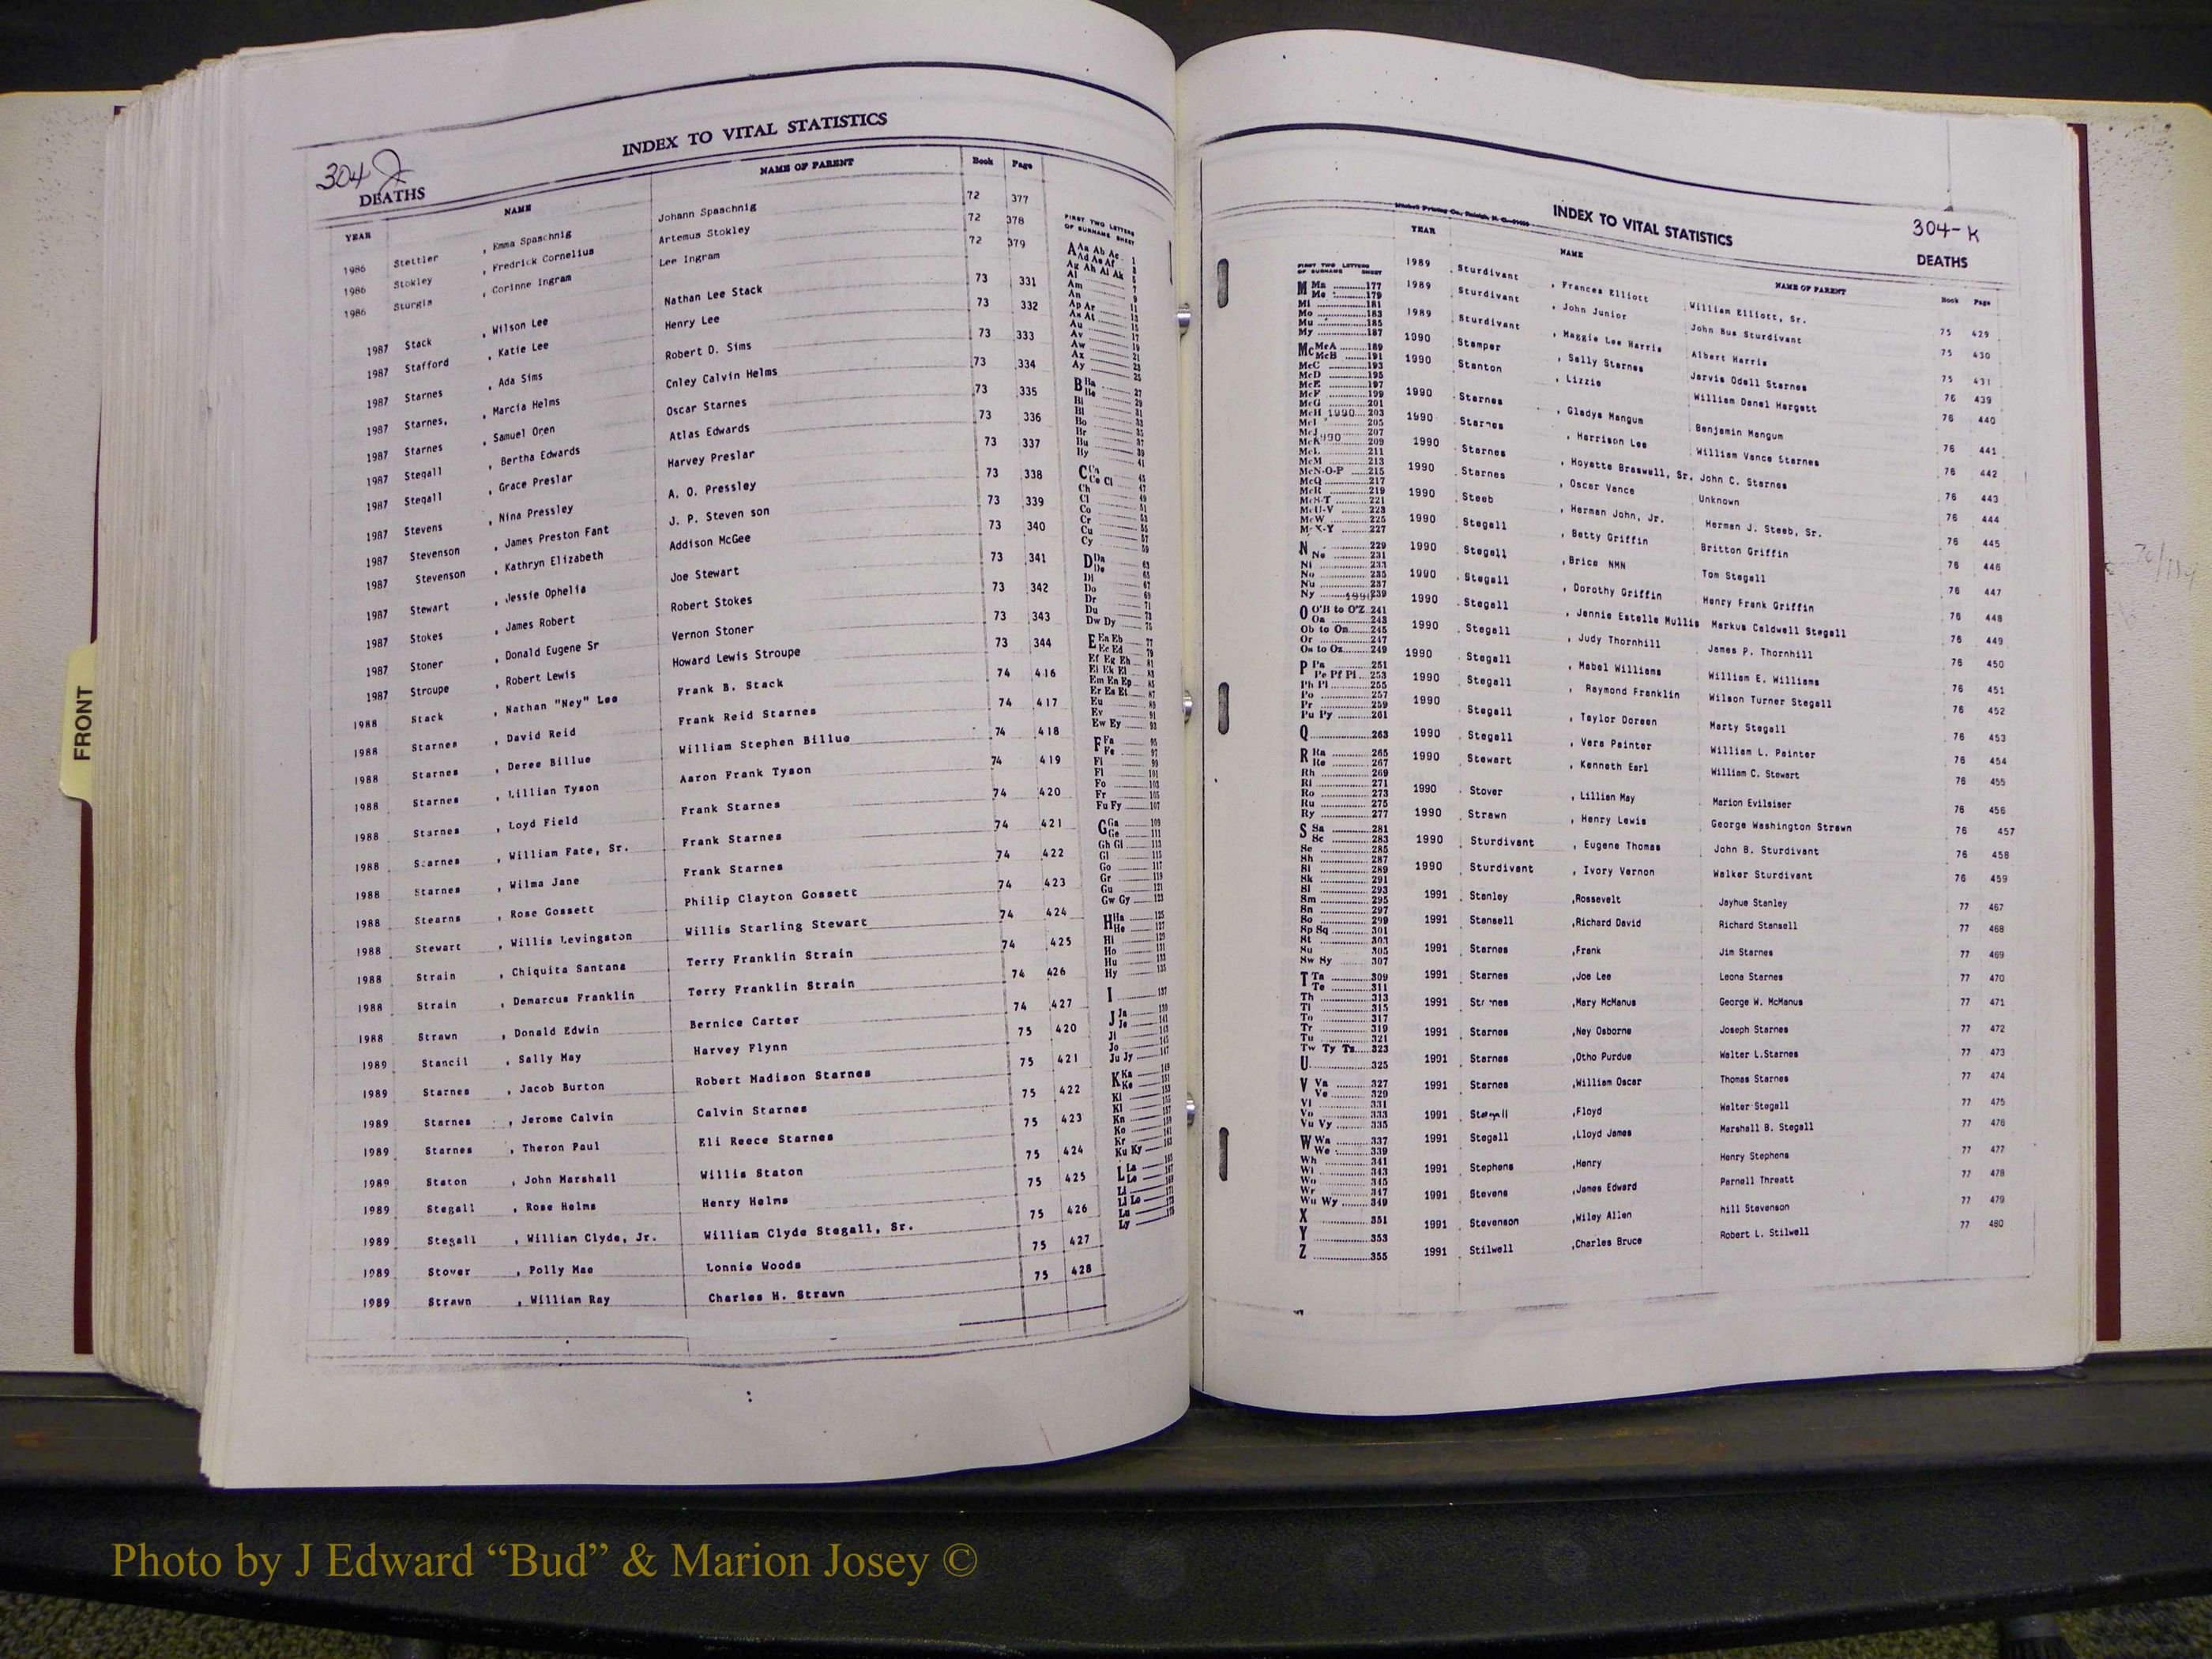 304 J
INDEX TO VITAL STATISTICS
DEATHS
YEAR NAME NAME OF PARENT Book Page
1986 Stettler , Emma Spaschnig Johann Spaschnig 72 377
1986 Stokley , Fredrick Cornelius Artemus Stokley 72 378
1986 Sturgis , Corinne Ingram Lee Ingram 72 379
1987 Stack , Wilson Lee Nathan Lee Stack 73 331
1987 Stafford , Katie Lee Henry Lee 73 332
1987 Starnes , Ada Sims Robert D. Sims 73 333
1987 Starnes, , Marcia Helms Cnley Calvin Helms 73 334
1987 Starnes , Samuel Oren Oscar Starnes 73 335
1987 Stegall , Bertha Edwards Atlas Edwards 73 336
1987 Stegall , Grace Preslar Harvey Preslar 73 337
1987 Stevens , Nina Pressley A. O. Pressley 73 338
1987 Stevenson , James Preston Fant J. P. Steven son 73 339
1987 Stevenson , Kathryn Elizabeth Addison McGee 73 340
1987 Stewart , Jessie Ophelia Joe Stewart 73 341
1987 Stokes , James Robert Robert Stokes 73 342
1987 Stoner , Donald Eugene Sr Vernon Stoner 73 343
1987 Stroupe , Robert Lewis Howard Lewis Stroupe 73 344
1988 Stack , Nathan "Ney" Lee Frank B. Stack 74 416
1988 Starnes , David Reid Frank Reid Starnes 74 417
1988 Starnes , Deree Billue William Stephen Billue 74 418
1988 Starnes , Lillian Tyson Aaron Frank Tyson 74 419
1988 Starnes , Loyd Field Frank Starnes 74 420
1988 Starnes , William Fate, Sr. Frank Starnes 74 421
1988 Starnes , Wilma Jane Frank Starnes 74 422
1988 Stearns , Rose Gossett Philip Clayton Gossett 74 423
1988 Stewart , Willis Levingston Willis Starling Stewart 74 424
1988 Strain , Chiquita Santana Terry Franklin Strain 74 425
1988 Strain , Demarcus Franklin Terry Franklin Strain 74 426
1988 Strawn , Donald Edwin Bernice Carter 74 427
1989 Stancil , Sally May Harvey Flynn 75 420
1989 Starnes , Jacob Burton Robert Madison Starnes 75 421
1989 Starnes , Jerome Calvin Calvin Starnes 75 422
1989 Starnes , Theron Paul Eli Reece Starnes 75 423
1989 Staton , John Marshall Willis Staton 75 424
1989 Stegall , Rose Helms Henry Helms 75 425
1989 Stegall , William Clyde, Jr. William Clyde Stegall, Sr. 75 426
1989 Stover , Polly Mae Lonnie Woods 75 427
1989 Strawn , William Ray Charles H. Strawn 75 428
FIRST TWO LETTERS
OF SURNAME SHEET
FRONT
INDEX TO VITAL STATISTICS
304-K
DEATHS
YEAR NAME NAME OF PARENT Book Page
1989 Sturdivant , Frances Elliott William Elliott, Sr. 75 429
1989 Sturdivant , John Junior John Bus Sturdivant 75 430
1989 Sturdivant , Maggie Lee Harris Albert Harris 75 431
1990 Stamper , Sally Starnes Jarvis Odell Starnes 76 439
1990 Stanton , Lizzie William Danel Hargett 76 440
1990 Starnes , Gladys Mangum Benjamin Mangum 76 441
1990 Starnes , Harrison Lee William Vance Starnes 76 442
1990 Starnes , Hoyette Braswell, Sr. John C. Starnes 76 443
1990 Starnes , Oscar Vance Unknown 76 444
1990 Steeb , Herman John, Jr. Herman J. Steeb, Sr. 76 445
1990 Stegall , Betty Griffin Britton Griffin 76 446
1990 Stegall , Brice NMN Tom Stegall 76 447
1990 Stegall , Dorothy Griffin Henry Frank Griffin 76 448
1990 Stegall , Jennie Estelle Mullis Markus Caldwell Stegall 76 449
1990 Stegall , Judy Thornhill James P. Thornhill 76 450
1990 Stegall , Mabel Williams William E. Williams 76 451
1990 Stegall , Raymond Franklin Wilson Turner Stegall 76 452
1990 Stegall , Taylor Doreen Marty Stegall 76 453
1990 Stegall , Vera Painter William L. Painter 76 454
1990 Stewart , Kenneth Earl William C. Stewart 76 455
1990 Stover , Lillian May Marion Evilsiser 76 456
1990 Strawn , Henry Lewis George Washington Strawn 76 457
1990 Sturdivant , Eugene Thomas John B. Sturdivant 76 458
1990 Sturdivant , Ivory Vernon Walker Sturdivant 76 459
1991 Stanley ,Rossevelt Jayhue Stanley 77 467
1991 Stansell ,Richard David Richard Stansell 77 468
1991 Starnes ,Frank Jim Starnes 77 469
1991 Starnes ,Joe Lee Leona Starnes 77 470
1991 Starnes ,Mary McManus George W. McManus 77 471
1991 Starnes ,Ney Osborne Joseph Starnes 77 472
1991 Starnes ,Otho Purdue Walter L.Starnes 77 473
1991 Starnes ,William Oscar Thomas Starnes 77 474
1991 Stegall ,Floyd Walter Stegall 77 475
1991 Stegall ,Lloyd James Marshall B. Stegall 77 476
1991 Stephens ,Henry Henry Stephens 77 477
1991 Stevens ,James Edward Parnell Threatt 77 478
1991 Stevenson ,Wiley Allen hill Stevenson 77 479
1991 Stilwell ,Charles Bruce Robert L. Stilwell 77 480
FIRST TWO LETTERS
OF SURNAME SHEET
M Ma 177
Me 179
Mi 181
Mo 183
Mu 185
My 187
Mc McA 189
McB 191
McC 193
McD 195
McE 197
McF 199
McG 201
McH 203
McI 205
McJ 207
McK 209
McL 211
McM 213
McN-O-P 215
McQ 217
McR 219
McS-T 221
McU-V 223
McW 225
McX-Y 227
N 229
Ne 231
Ni 233
No 235
Nu 237
Ny 239
O O'B to O'Z 241
Oa 243
Ob to On 245
Or 247
Os to Oz 249
P Pa 251
Pe Pf Pi 253
Ph Pl 255
Po 257
Pr 259
Pu Py 261
Q 263
R Ra 265
Re 267
Rh 269
Ri 271
Ro 273
Ru 275
Ry 277
S Sa 281
Sc 283
Se 285
Sh 287
Si 289
Sk 291
Sl 293
Sm 295
Sn 297
So 299
Sp Sq 301
St 303
Su 305
Sw Sy 307
T Ta 309
Te 311
Th 313
Ti 315
To 317
Tr 319
Tu 321
Tw Ty Tz 323
U 325
V Va 327
Ve 329
Vi 331
Vo 333
Vu Vy 335
W Wa 337
We 339
Wh 341
Wi 343
Wo 345
Wr 347
Wu Wy 349
X 351
Y 353
Z 355
Photo by J Edward “Bud” & Marion Josey ©